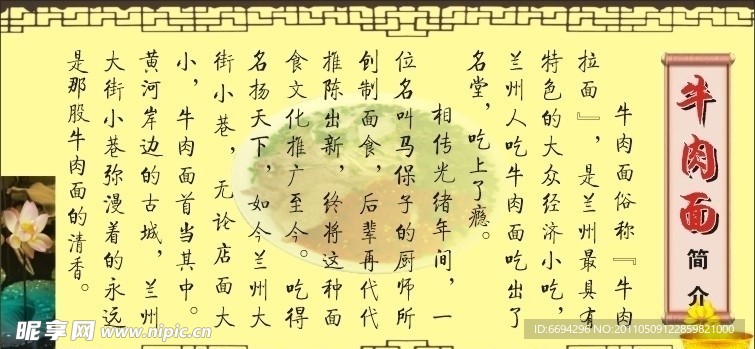 牛肉面
简介
牛肉面俗称『牛肉
拉面』，是兰州最具有
特色的大众经济小吃，
兰州人吃牛肉面吃出了
名堂，吃上了瘾。
相传光绪年间，一
位名叫马保子的厨师所
创制面食，后辈再代代
推陈出新，终将这种面
食文化推广至今。吃得
名扬天下，如今兰州大
街小巷，无论店面大
小，牛肉面首当其中。
黄河岸边的古城，兰州
大街小巷弥漫着的永远
是那股牛肉面的清香。
昵享网 www.nipic.cn
ID:6694296 NO:20110509122859821000